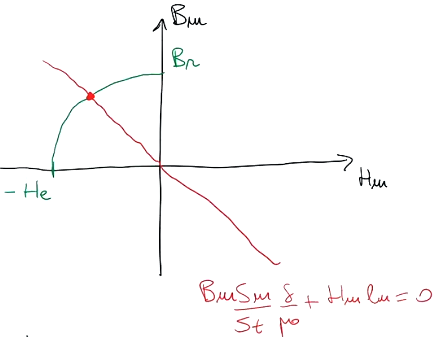 Bm
Br
Hm
- He
Bm Sm/St δ/μ0 + Hm lm = 0